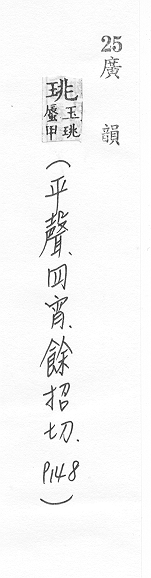 25
廣韻
珧玉珧蜃甲
(平聲、四宵、餘招切、P148)